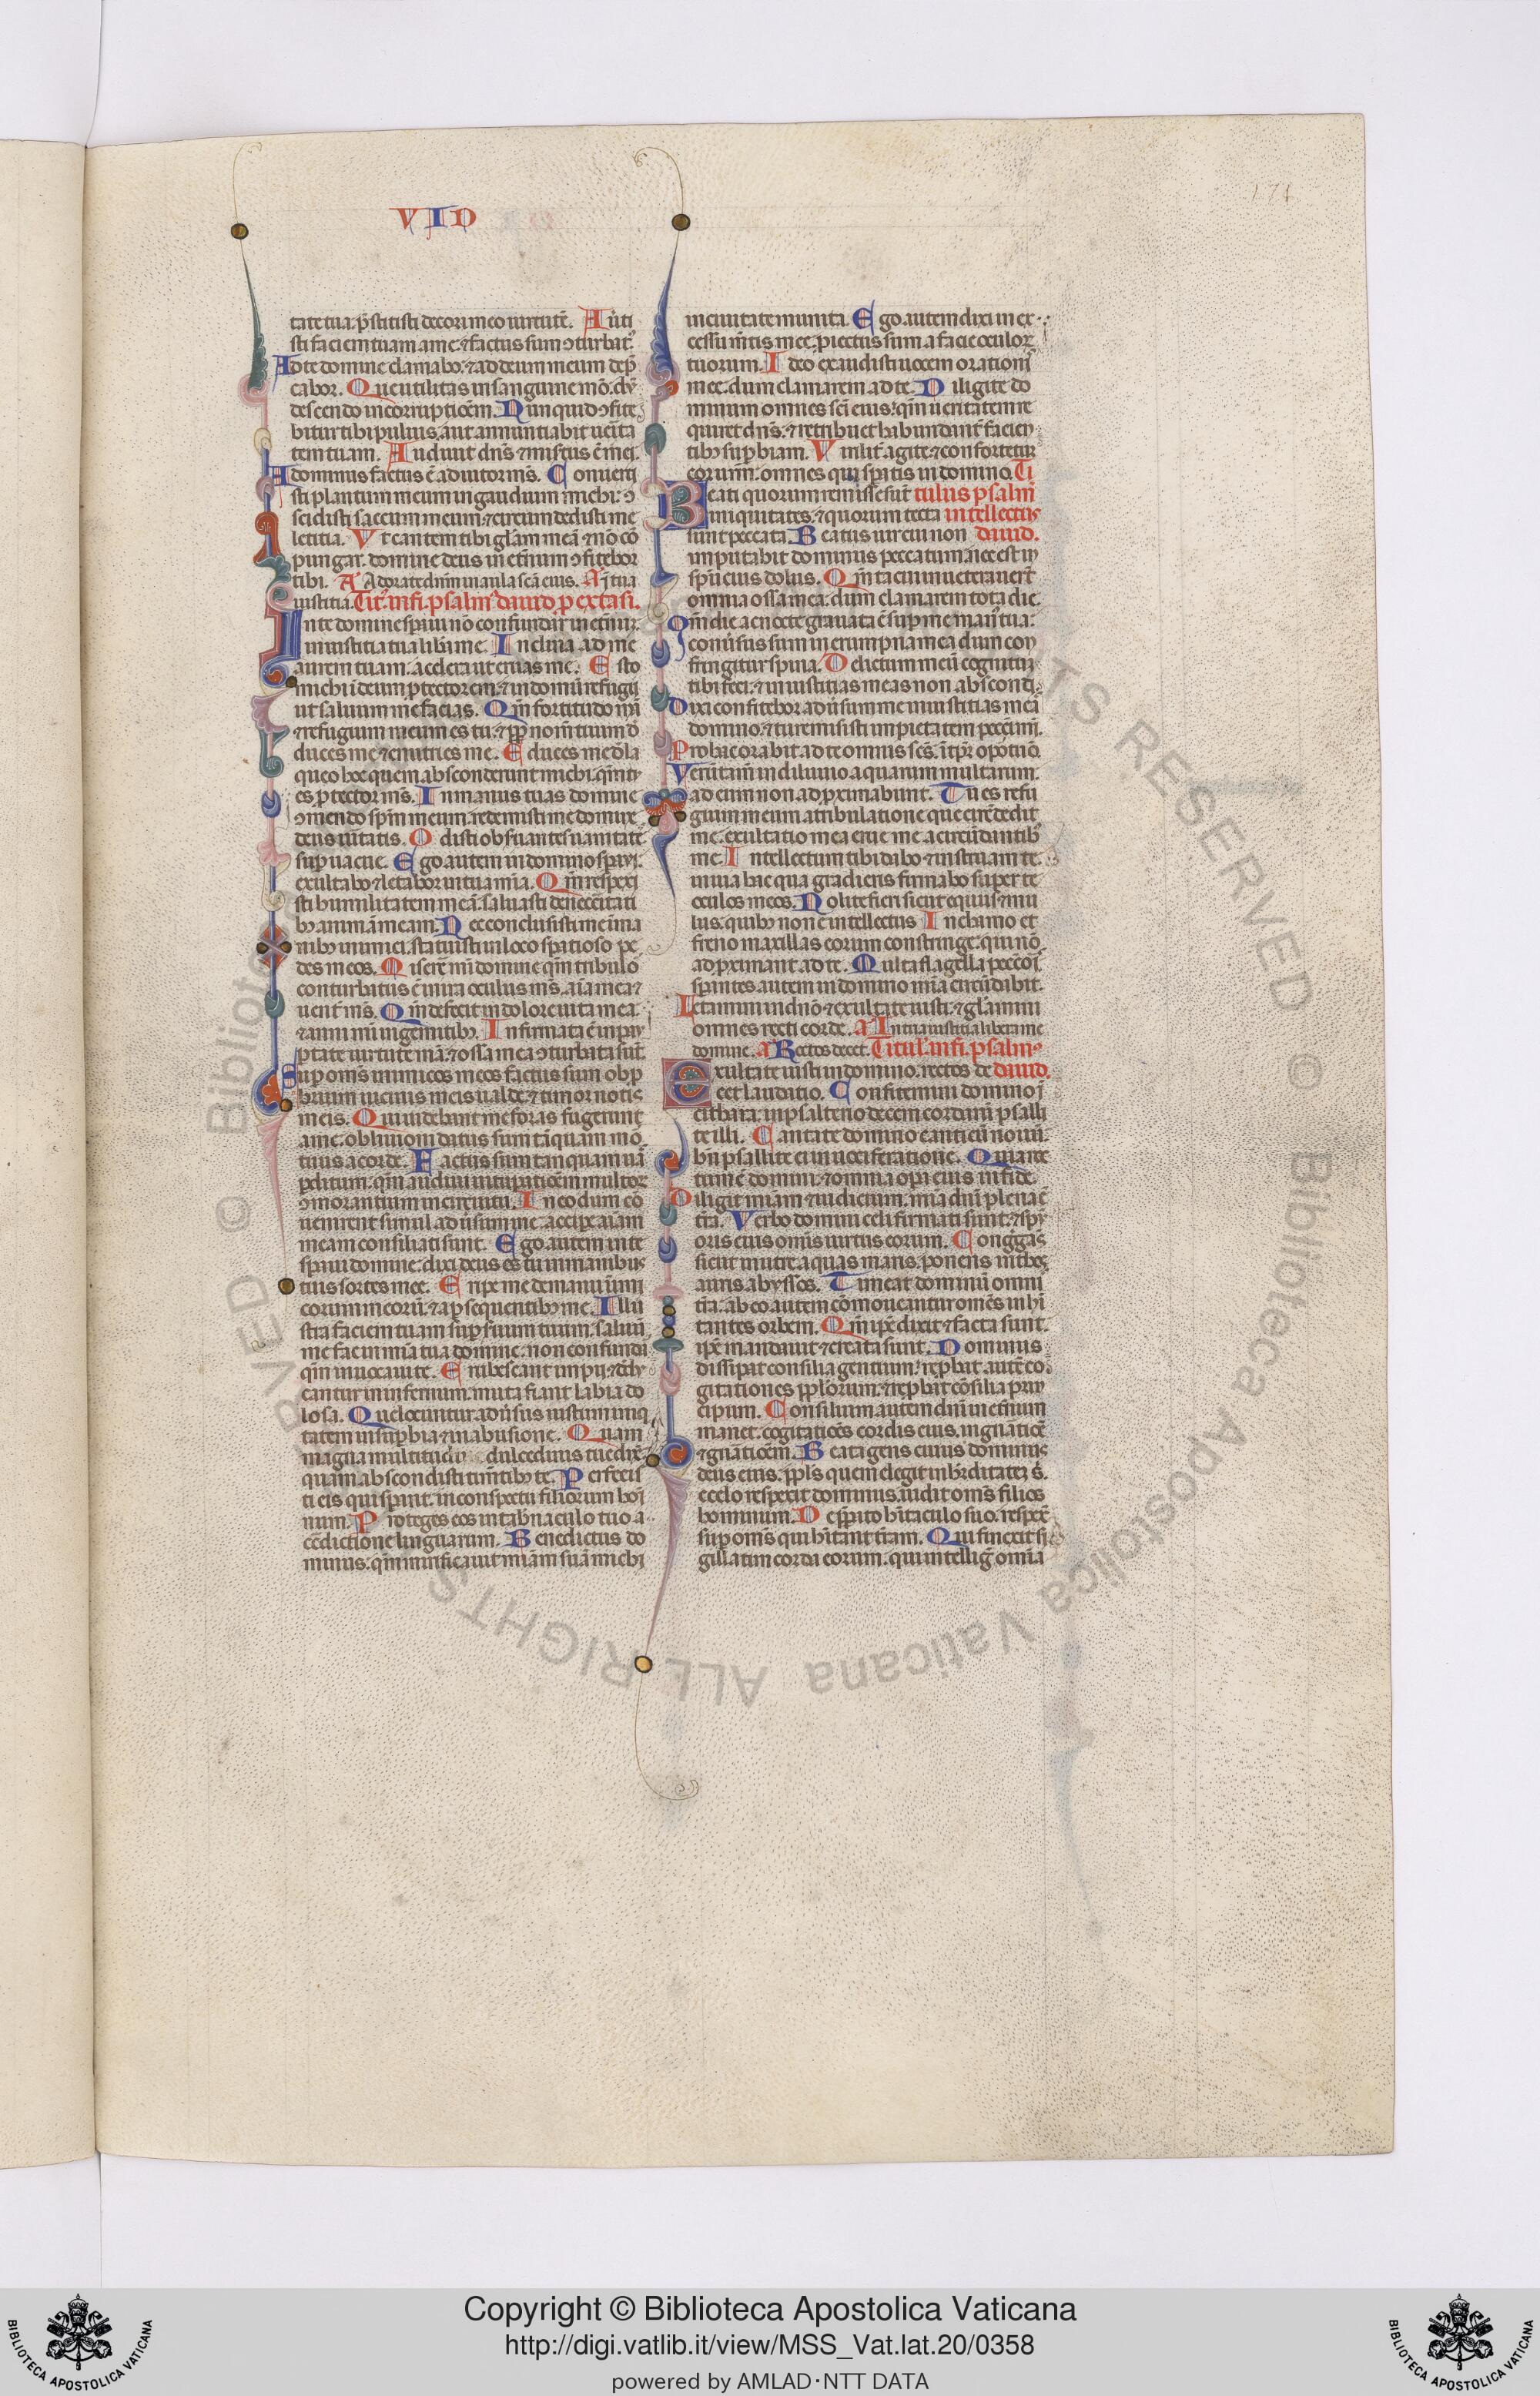 VID
171
tate tua p̄stitisti decori meo uirtutē. Auti
sti faciem tuam a me: ⁊ factus sum ↄturbat᷒.
Ad te domine clamabo: ⁊ ad deum meum dep̄
cabor. Que utilitas in sanguine meo. dū
descendo in corruptiōem. Nunquid ↄfite
bitur tibi puluis. aut annuntiabit uerita
tem tuam. Audiuit dn̄s ⁊ misertus ē mei:
dominus factus ē adiutor ms̄. Conuerti
sti planctum meum in gaudium michi: ↄ
scidisti saccum meum: ⁊ circumdedisti me
letitia. Vt cantem tibi gl̄am meā ⁊ nō cō
pungar. domine deus in etn̄um ↄfitebor
tibi. A Adorate dn̄m in aula sc̄a eius. A In tua
iustitia. Tit᷒. infi. psalm᷒ dauid p extasi.
In te domine speraui nō confundar in etn̄ū:
in iustitia tua libera me. Inclina ad me
aurem tuam: accelera ut eruas me. Esto
michi in deum ptectorem: ⁊ in domū refugii
ut saluum me facias. Qm̄ fortitudo mā
⁊ refugium meum es tu: ⁊ ꝓp nomen tuum d̄
duces me ⁊ enutries me. Educes me d̄ la
queo hoc quem absconderunt michi: qm̄ tu
es ptector ms̄. In manus tuas domine
ↄmendo spm̄ meum: redemisti me domine
deus ueritatis. Odisti obseruantes uanitatē
superuacue. Ego autem in domino speraui:
exultabo ⁊ letabor in tua mīa. Qm̄ respexi
sti humilitatem meā: saluasti de necessitati
bꝫ animā meam. Nec conclusisti me ī ma
nibꝫ inimici: statuisti in loco spatioso pe
des meos. Miserere mī domine qm̄ tribulor
conturbatus ē in ira oculus ms̄. aīa mea ⁊
uenter ms̄. Qm̄ defecit in dolore uita mea:
⁊ anni mī in gemitibꝫ. Infirmata ē in pau
ptate uirtus mā: ⁊ ossa mea ↄturbata sūt.
Sup oms̄ inimicos meos factus sum obp
brium uicinis meis ualde: ⁊ timor notis
meis. Qui uidebant me foras fugerunt
a me: obliuioni datus sum tāquam mor
tuus a corde. Factus sum tanquam uas
pditum: qm̄ audiui uituperatiōem multor᷒
ↄmorantium in circuitu. In eo dum cō
uenirent simul aduersum me: accipe aīam
meam consiliati sunt. Ego autem in te
speraui domine: dixi deus es tu in manibus
tuis sortes mee. Eripe me de manu inimi
corum meorū: ⁊ a psequentibꝫ me. Illu
stra faciem tuam sup seruum tuum: saluū
me fac in mīa tua domine: non confundar
qm̄ inuocaui te. Erubescant impii: ⁊ dedu
cantur in infernum: muta fiant labia do
losa. Que locuntur aduersus iustum iniq
tatem in supbia ⁊ in abusione. Quam
magna multitudo dulcedinis tue dn̄e:
quam abscondisti timentibꝫ te. Perfecis
ti eis qui sperant: in conspectu filiorum homi
num. Proteges eos in tabernaculo tuo a
cōdictione linguarum. Benedictus do
minus: qm̄ mirificauit mīam suā michi
in ciuitate munita. Ego autem dixi in ex
cessu mentis mee: piectus sum a facie oculor᷒
tuorum. Ideo exaudisti uocem orationis
mee: dum clamarem ad te. Diligite do
minum omnes sc̄i eius: qm̄ ueritatem re
quiret dn̄s: ⁊ retribuet habundanter facien
tibꝫ supbiam. Viriliter agite: ⁊ confortetur
cor uestrum: omnes qui speratis in domino. Ti
Beati quorum remisse sūt tulus psalmi
iniquitates: ⁊ quorum tecta intellectus
sunt peccata. Beatus uir cui non dauid.
imputabit dominus peccatum: nec est in
spū eius dolus. Qm̄ tacui inueterauerūt
omnia ossa mea: dum clamarem tota die.
Qm̄ die ac nocte grauata ē sup me manus tua:
conuersus sum in erumpna mea dum con
fringitur spina. Delictum meū cognitum
tibi feci: ⁊ iniustitias meas non abscondi.
Dixi confitebor aduersum me iniustitias meā
domino: ⁊ tu remisisti impietatem pecc̄i mī.
Pro hac orabit ad te omnis sc̄s. in tpr̄ oportuno.
Verūtam̄ in diluuio aquarum multarum:
ad eum non adpximabunt. Tu es refu
gium meum a tribulatione que circūdedit
me: exultatio mea erue me a circūdantibꝫ
me. Intellectum tibi dabo ⁊ instruam te
in uia hac qua gradieris: firmabo super te
oculos meos. Nolite fieri sicut equus ⁊ mu
lus: quibꝫ non ē intellectus. In chamo et
freno maxillas eorum constringe: qui nō
adpximant ad te. Multa flagella peccatoris:
sperantes autem in domino mīa circūdabit.
Letamini in dn̄o ⁊ exultate iusti: ⁊ gl̄amini
omnes recti corde. A In tua iustitia libera me
domine. A Rectos decet. Titul᷒. infi. psalm᷒
Exultate iusti in domino: rectos de dauid.
cet laudatio. Confitemini domino ī
cithara: in psalterio decem cordarū psalli
te illi. Cantate domino canticū nouū:
bn̄ psallite ei in uociferatione. Quia rec
tum ē domini: ⁊ omnia opera eius in fide.
Diligit mīam ⁊ iudicium: mīa dn̄i plena ē
tr̄a. Verbo domini celi firmati sunt: ⁊ spū
oris eius omnis uirtus eorum. Congregās
sicut in utre aquas maris: ponens in thes
auris abyssos. Timeat dominū omnis
tr̄a: ab eo autem cōmoueantur omēs inhabi
tantes orbem. Qm̄ ipē dixit ⁊ facta sunt:
ipē mandauit ⁊ creata sunt. Dominus
dissipat consilia gentium: reprobat autē co
gitationes ppl̄orum: ⁊ reprobat cōsilia prin
cipum. Consilium autem dn̄i in etn̄um
manet: cogitatiōes cordis eius in gn̄atiōe
⁊ gn̄atiōem. Beata gens cuius dominus
deus eius: ppl̄s quem elegit in hereditatem s̄.
e celo respexit dominus: uidit oms̄ filios
hominum. De pparato habitaculo suo: respexit
sup oms̄ qui habitant tr̄am. Qui finxit si
gillatim corda eorum: qui intelligit omīa
ALL RIGHTS RESERVED © Biblioteca Apostolica Vaticana
Copyright © Biblioteca Apostolica Vaticana
http://digi.vatlib.it/view/MSS_Vat.lat.20/0358
powered by AMLAD·NTT DATA
BIBLIOTECA APOSTOLICA VATICANA
BIBLIOTECA APOSTOLICA VATICANA